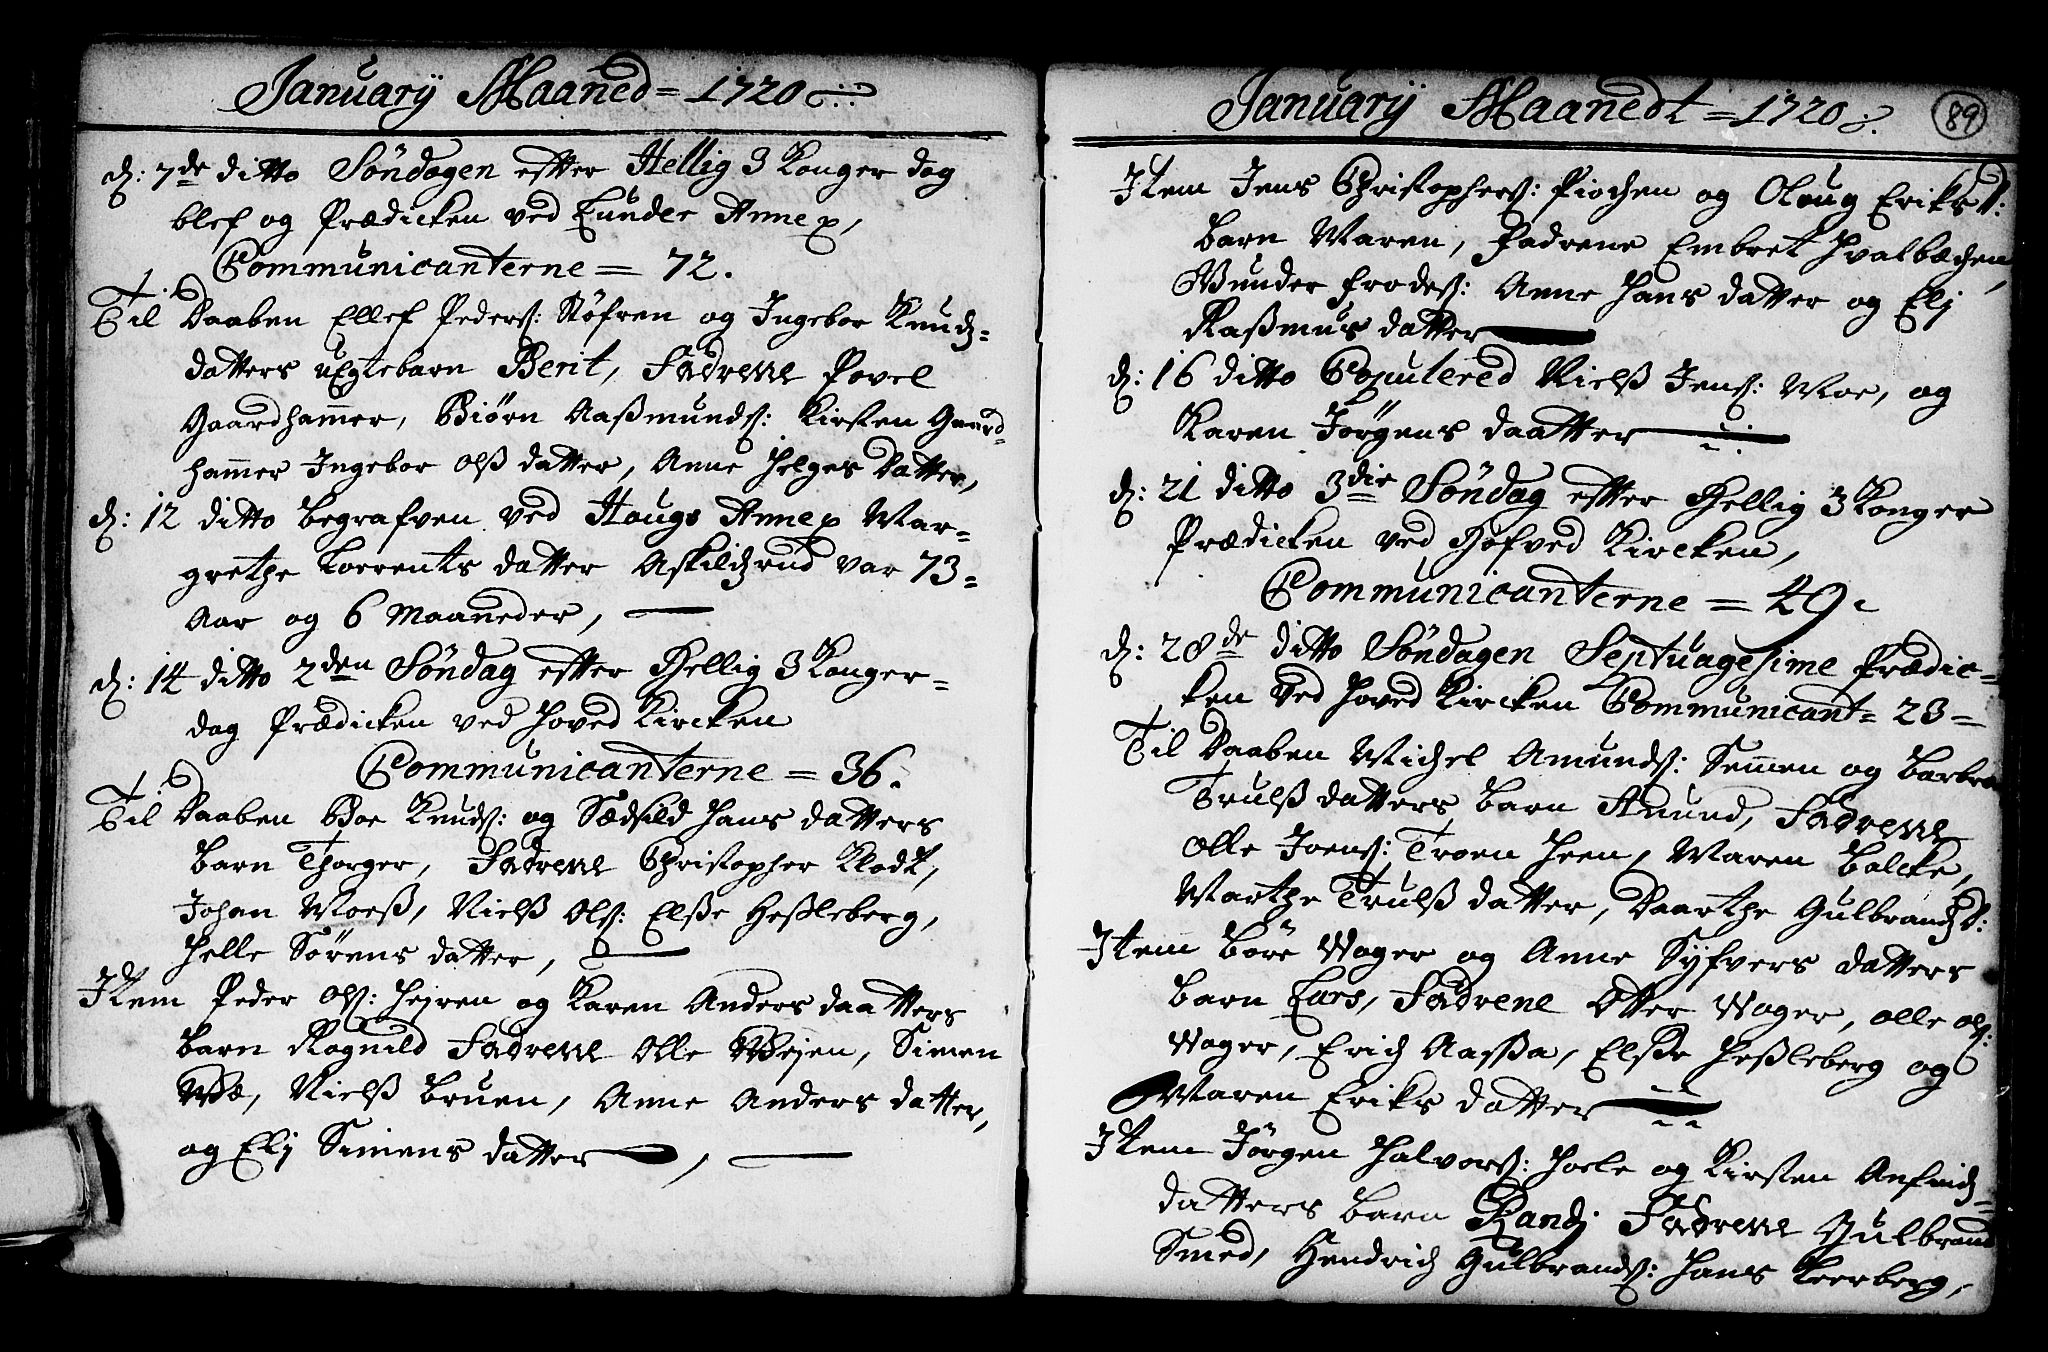 Januarij Maaned = 1720
d: 7de ditto Söndagen effter Hellig 3 Konger dag
blef og Prædicken ved Lunder Annex,
Communicanterne = 72.
Til Daaben Ellef Peders: Støfren og Ingebor Knudz=
datters uEgtebarn Berit, Fadrene Povel
Gaardhamer, Biørn Aaßmunds: Kirsten Gaard=
hamer Ingebor Olß datter, Anne Helges Datter,
d: 12 ditto begrafven ved Hougs Annex Mar=
grethe Lorents datter Askildzrud var 73=
Aar og 6 Maaneder,
d: 14 ditto 2den Söndag effter Hellig 3 Konger=
dag Prædicken ved Hoved Kircken
Communicanterne = 36.
Til Daaben Boe Knuds: og Sædsild Hans datters
barn Thorger, Fadrene Christopher Klodt,
Johan Moeß, Nielß Ols: Elße Heßleberg,
Helle Sørens datter,
Item Peder Ols: Hejren og Karen Anders daatters
barn Ragnild Fadrene Olle Veyen, Simen
Væ, Nielß bruen, Anne Anders datter,
og Elj Simens datter
Januarij Maanedt = 1720 89
Item Jens Christophers: Piochen og Oloug Eriks D:
barn Maren, Fadrene Embret Hvalbæchen,
Gunder Frodes: Anne Hans datter og Elj
Raßmus datter
d: 16 ditto Copulered Nielß Jens: Moe, og
Karen Jörgens daatter
d: 21 ditto 3die Söndag effter Hellig 3 Konger
Prædicken ved Hofved Kircken,
Communicanterne = 49.
d: 28de ditto Söndagen Septuagesime Prædic=
ken ved Hoved Kircken Communicant= 23=
Til Daaben Michel Amunds: Semen og Barbra
Trulß datters barn Amund, Fadrene
Olle Joens: Troen Heen, Maren Balcke,
Marthe Trulß datter, Daarthe Gulbrandz D:
Item Bore Vager og Anne Syfvers datters
barn Lars, Fadrene Otter Vager, Olle Ols:
Vager, Erich Aaßa, Elße Heßleberg og
Maren Eriks datter
Item Jörgen Halvors: Hoele og Kirsten Anfindz=
datters barn Randj Fadrene Gulbrand
Smed, Hendrich Gulbrands: Hans Leerberg,